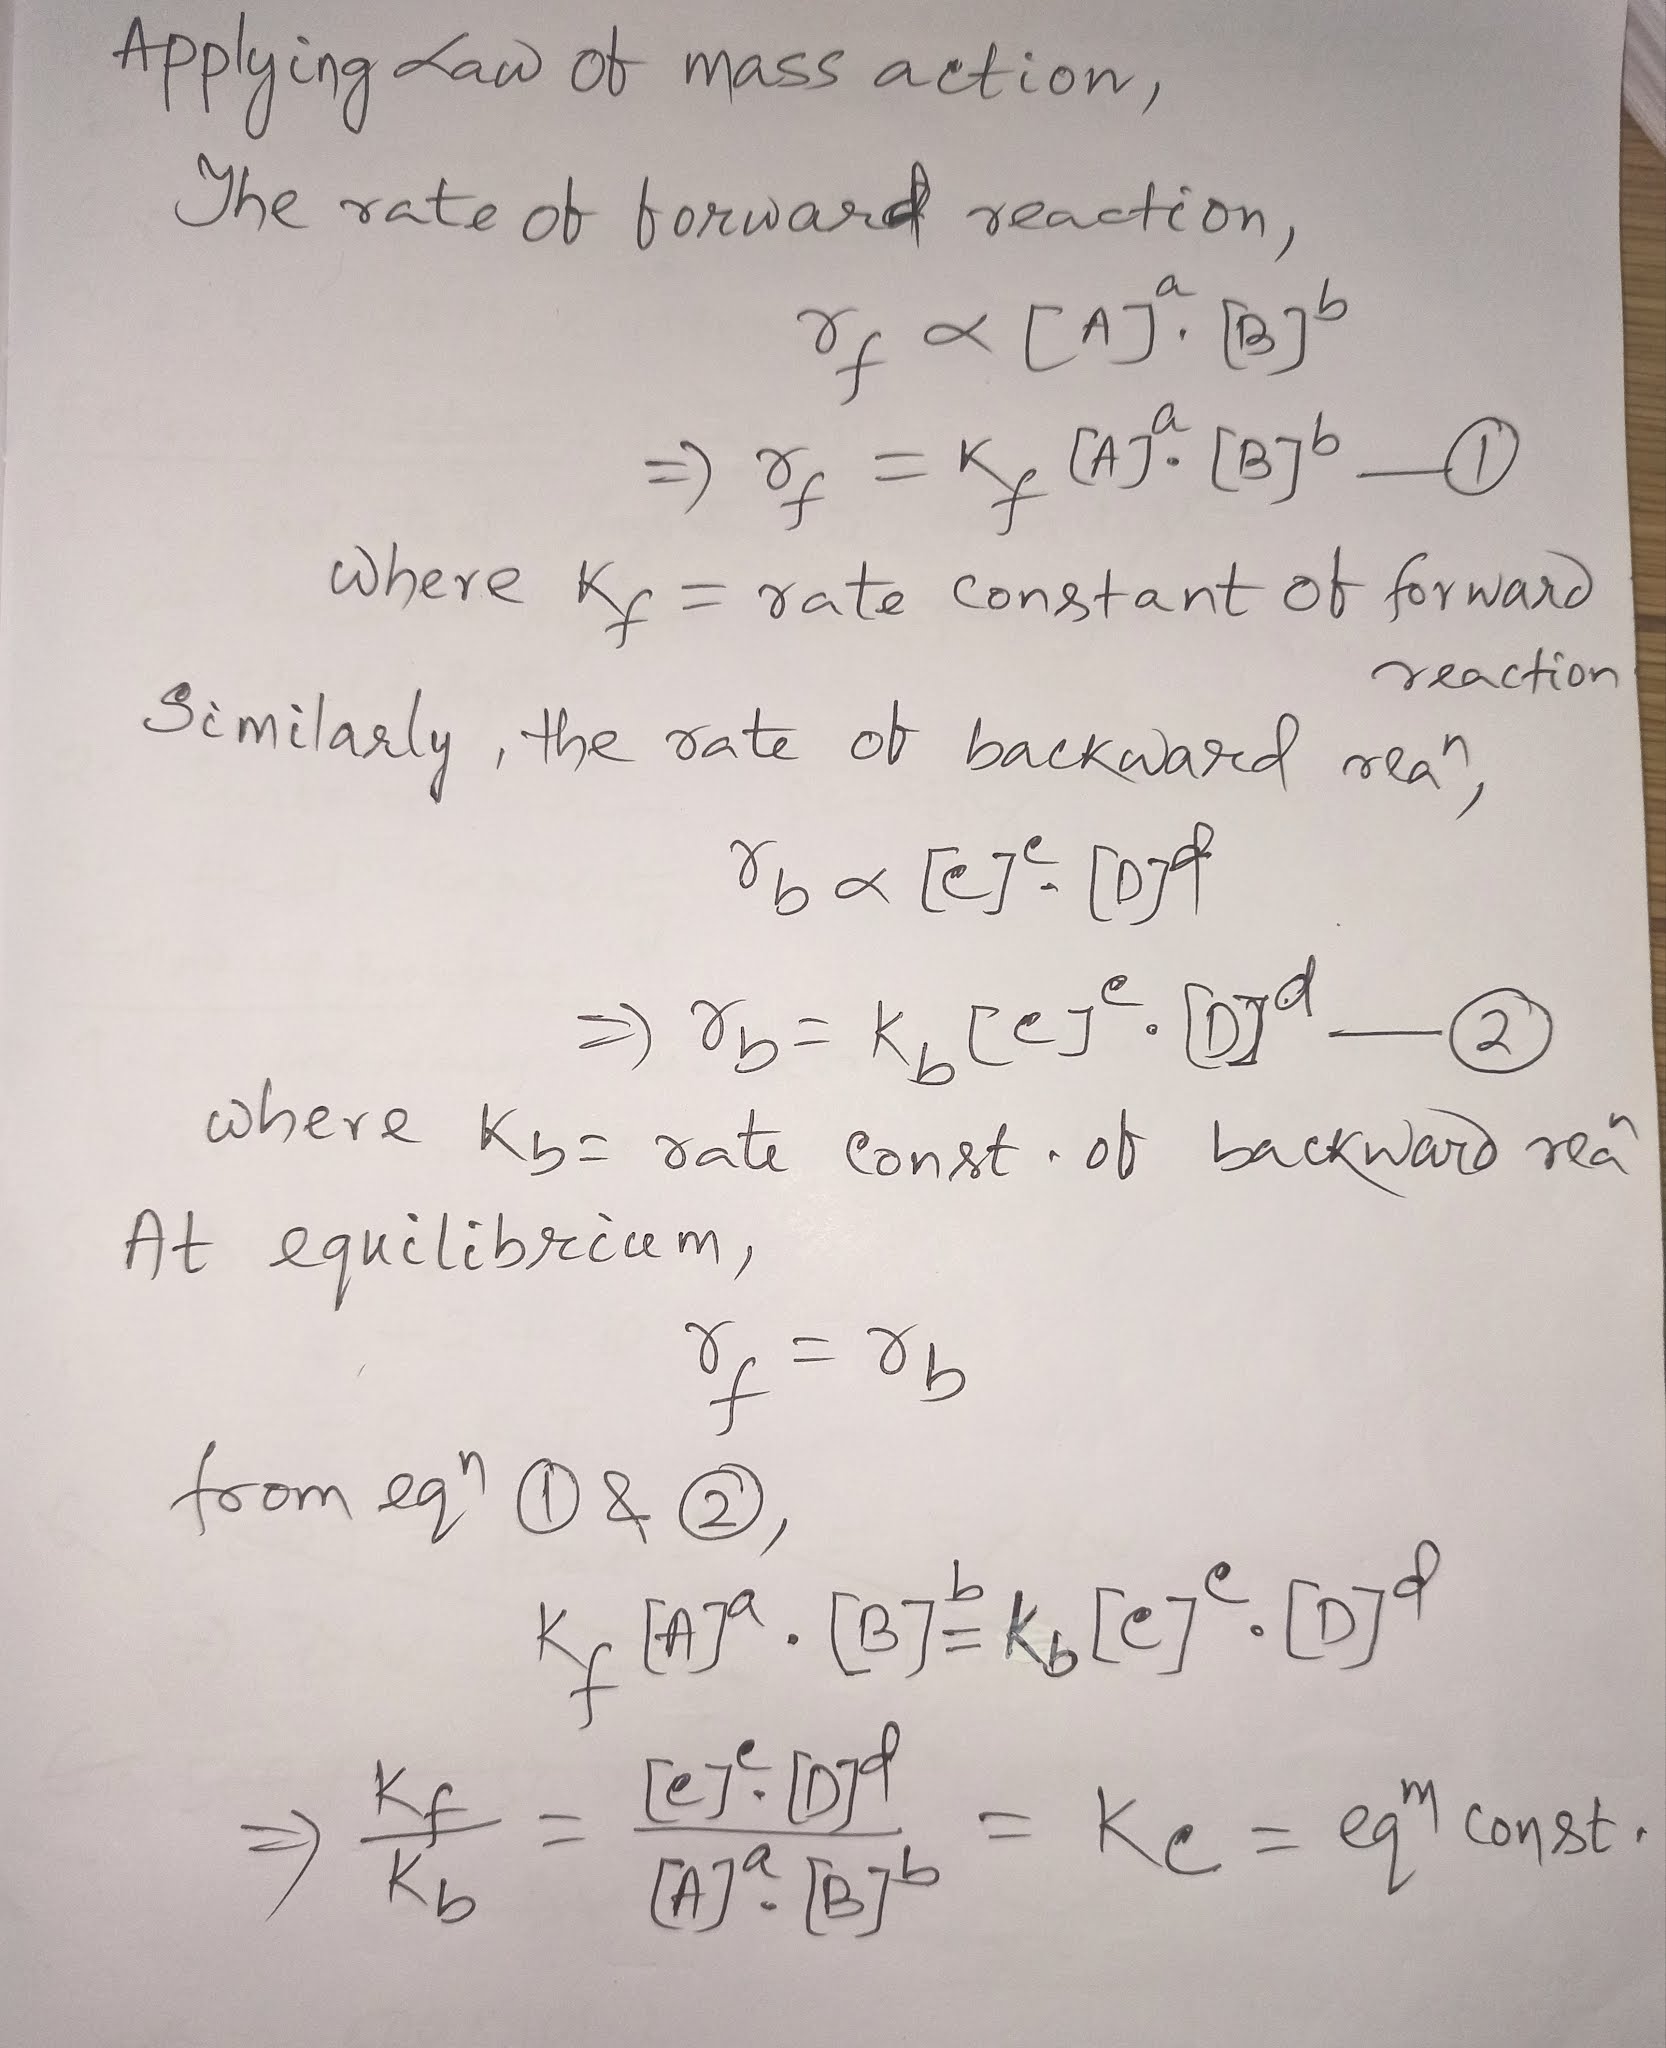 Applying Law of mass action,
The rate of forward reaction,
r_f ∝ [A]^a . [B]^b
=> r_f = K_f [A]^a . [B]^b — ①
where K_f = rate constant of forward
reaction
Similarly, the rate of backward rea^n,
r_b ∝ [C]^c . [D]^d
=> r_b = K_b [C]^c . [D]^d — ②
where K_b = rate const. of backward rea^n
At equilibrium,
r_f = r_b
from eq^n ① & ②,
K_f [A]^a . [B]^b = K_b [C]^c . [D]^d
=> K_f / K_b = [C]^c . [D]^d / [A]^a . [B]^b = K_c = eq^m const.